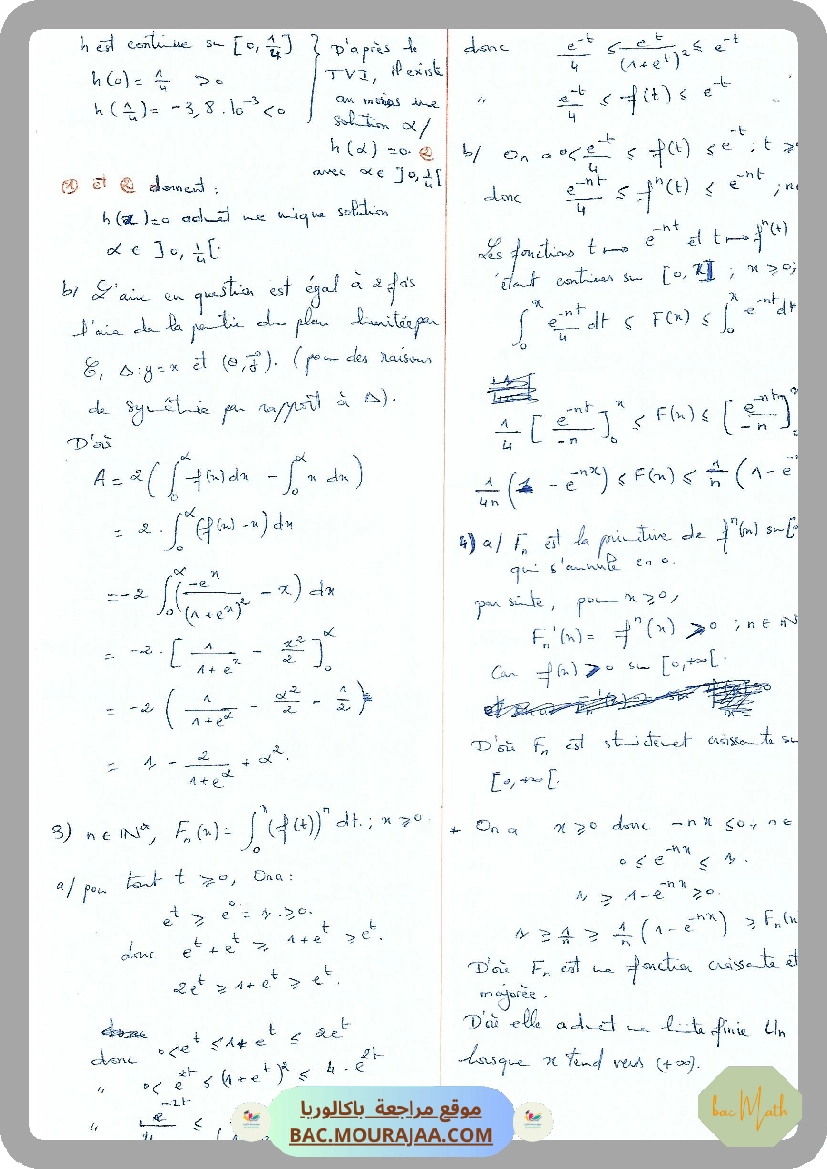 h est continue sur [0, 1/4]
h(0) = 1/4 > 0
h(1/4) = -3,8 . 10^-3 < 0
D'après le
TVI, il existe
au moins une
solution α /
h(α) = 0. ②
avec α ∈ ]0, 1/4[
① et ② donnent :
h(x) = 0 admet une unique solution
α ∈ ]0, 1/4[.
b/ L'aire en question est égal à 2 fois
l'aire de la partie du plan limitée par
ℰ, Δ: y = x et (O, j). (pour des raisons
de symétrie par rapport à Δ).
D'où
A = 2 ( ∫_0^α f(x) dx - ∫_0^α x dx )
= 2 . ∫_0^α (f(x) - x) dx
= -2 ∫_0^α ( -e^x / (1+e^x)^2 - x ) dx
= -2 . [ 1/(1+e^x) - x²/2 ]_0^α
= -2 ( 1/(1+e^α) - α²/2 - 1/2 )
= 1 - 2/(1+e^α) + α².
3) n ∈ IN*, F_n(x) = ∫_0^x (f(t))^n dt. ; x ≥ 0
a/ pour tout t ≥ 0, On a :
e^t ≥ e^0 = 1 . ≥ 0.
donc e^t + e^t ≥ 1 + e^t ≥ e^t.
2e^t ≥ 1 + e^t ≥ e^t.
donc 0 < e^t ≤ 1 + e^t ≤ 2e^t
" 0 < e^2t ≤ (1+e^t)² ≤ 4 . e^2t
donc e^-t/4 ≤ e^t/(1+e^t)² ≤ e^-t
" e^-t/4 ≤ f(t) ≤ e^-t
b/ On a 0 < e^-t/4 ≤ f(t) ≤ e^-t ; t ≥
donc e^-nt/4 ≤ f^n(t) ≤ e^-nt ; n
Les fonctions t ↦ e^-nt et t ↦ f^n(t)
étant continues sur [0, x] ; x ≥ 0;
∫_0^x e^-nt/4 dt ≤ F(x) ≤ ∫_0^x e^-nt dt
1/4 [ e^-nt/-n ]_0^x ≤ F(x) ≤ [ e^-nt/-n ]
1/4n (1 - e^-nx) ≤ F(x) ≤ 1/n (1 - e
4) a/ F_n est la primitive de f^n(x) sur [0
qui s'annule en 0.
par suite, pour x ≥ 0,
F_n'(x) = f^n(x) > 0 ; n ∈ IN
Car f(x) > 0 sur [0, +∞[.
D'où F_n est strictement croissante su
[0, +∞[.
+ On a x ≥ 0 donc -nx ≤ 0, n ∈
0 ≤ e^-nx ≤ 1.
1 ≥ 1 - e^-nx ≥ 0.
1 ≥ 1/n ≥ 1/n (1 - e^-nx) ≥ F_n(x
D'où F_n est une fonction croissante et
majorée.
D'où elle admet une limite finie Un
lorsque x tend vers (+∞).
موقع مراجعة باكالوريا
BAC.MOURAJAA.COM
bac Math